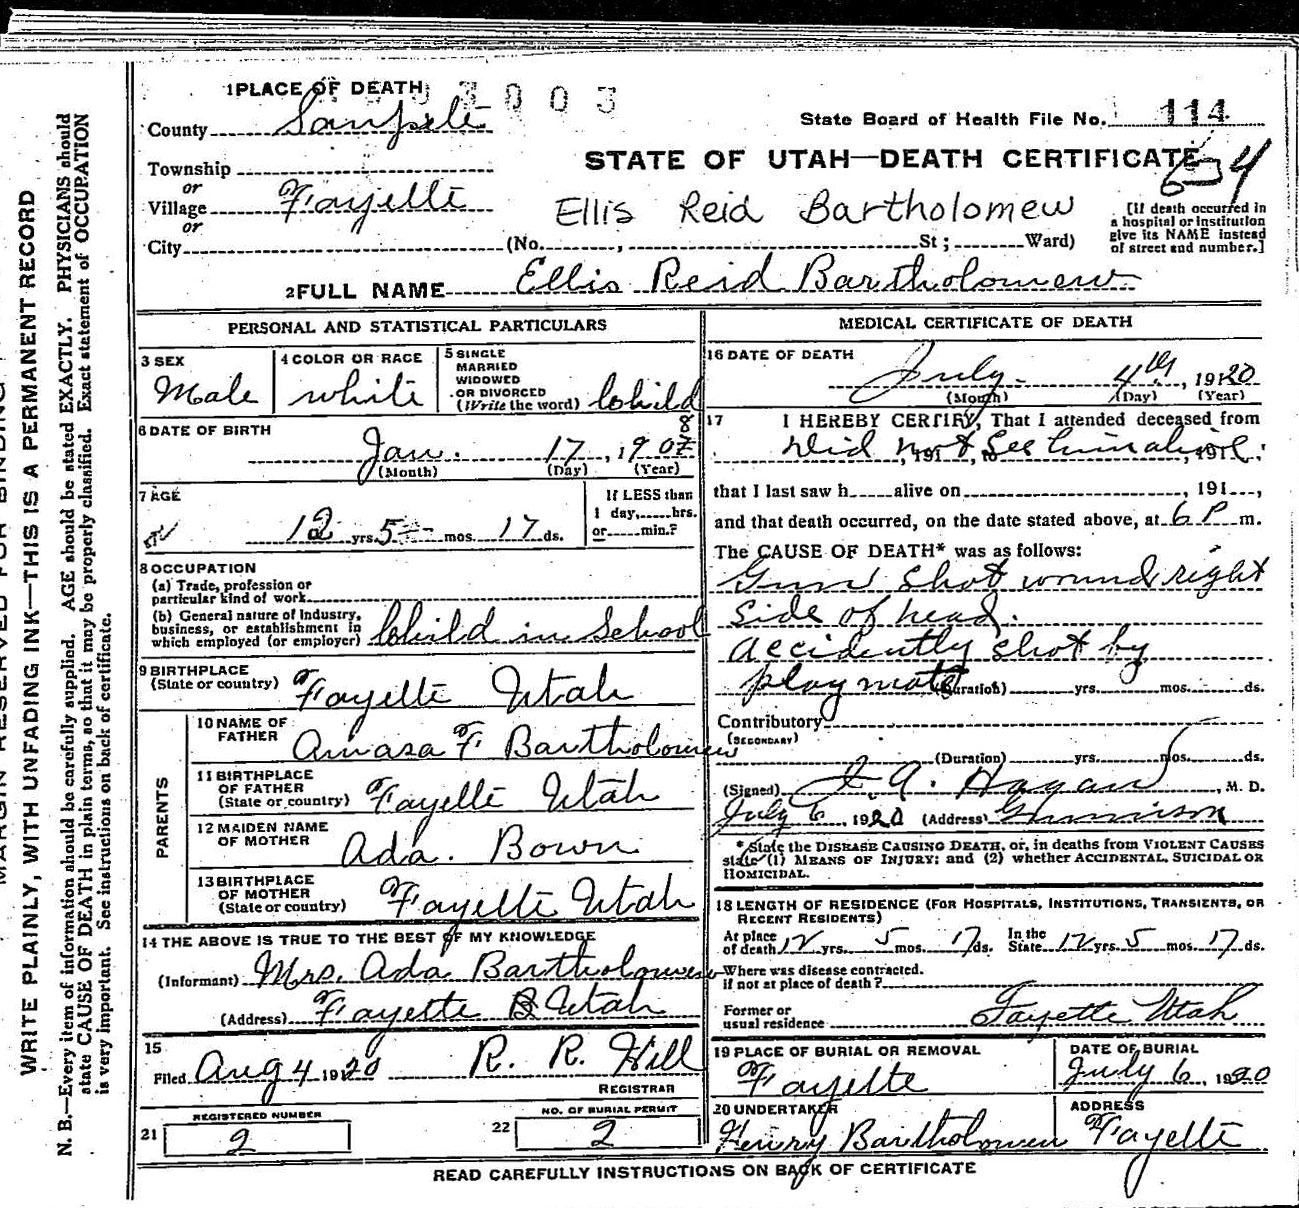 1 PLACE OF DEATH
3003
County Sanpete
State Board of Health File No. 114
Township
or
Village Fayette
or
City
STATE OF UTAH—DEATH CERTIFICATE
Ellis Reid Bartholomew
[If death occurred in
a hospital or institution
give its NAME instead
of street and number.]
(No. , St ; Ward)
2 FULL NAME Ellis Reid Bartholomew
PERSONAL AND STATISTICAL PARTICULARS
3 SEX
Male
4 COLOR OR RACE
white
5 SINGLE
MARRIED
WIDOWED
OR DIVORCED
(Write the word) Child
6 DATE OF BIRTH
Jan. 17, 1908
(Month) (Day) (Year)
7 AGE
12 yrs. 5 mos. 17 ds.
If LESS than
1 day, hrs.
or min.?
8 OCCUPATION
(a) Trade, profession or
particular kind of work
(b) General nature of Industry,
business, or establishment in
which employed (or employer) Child in School
9 BIRTHPLACE
(State or country) Fayette Utah
PARENTS
10 NAME OF
FATHER Amasa F Bartholomew
11 BIRTHPLACE
OF FATHER
(State or country) Fayette Utah
12 MAIDEN NAME
OF MOTHER Ada. Bown
13 BIRTHPLACE
OF MOTHER
(State or country) Fayette Utah
14 THE ABOVE IS TRUE TO THE BEST OF MY KNOWLEDGE
(Informant) Mrs. Ada Bartholomew
(Address) Fayette Utah
15
Filed Aug 4 1920 R. R. Hill
REGISTRAR
REGISTERED NUMBER
21 2
NO. OF BURIAL PERMIT
22 2
MEDICAL CERTIFICATE OF DEATH
16 DATE OF DEATH
July 4th, 1920
(Month) (Day) (Year)
17 I HEREBY CERTIFY, That I attended deceased from
Did not see him alive
that I last saw h alive on , 191 ,
and that death occurred, on the date stated above, at 6 P m.
The CAUSE OF DEATH* was as follows:
Gun shot wound right
side of head.
accidently shot by
playmate (Duration) yrs. mos. ds.
Contributory
(SECONDARY)
(Duration) yrs. mos. ds.
(Signed) Hagan, M. D.
July 6, 1920 (Address) Gunnison
*State the DISEASE CAUSING DEATH, or, in deaths from VIOLENT CAUSES
state (1) MEANS OF INJURY; and (2) whether ACCIDENTAL, SUICIDAL OR
HOMICIDAL.
18 LENGTH OF RESIDENCE (FOR HOSPITALS, INSTITUTIONS, TRANSIENTS, OR
RECENT RESIDENTS)
At place In the
of death 12 yrs. 5 mos. 17 ds. State 12 yrs. 5 mos. 17 ds.
Where was disease contracted.
if not at place of death?
Former or
usual residence Fayette Utah
19 PLACE OF BURIAL OR REMOVAL
Fayette
DATE OF BURIAL
July 6, 1920
20 UNDERTAKER
Henry Bartholomew
ADDRESS
Fayette
READ CAREFULLY INSTRUCTIONS ON BACK OF CERTIFICATE
WRITE PLAINLY, WITH UNFADING INK—THIS IS A PERMANENT RECORD
N. B.—Every item of information should be carefully supplied. AGE should be stated EXACTLY. PHYSICIANS should
state CAUSE OF DEATH in plain terms, so that it may be properly classified. Exact statement of OCCUPATION
is very important. See instructions on back of certificate.